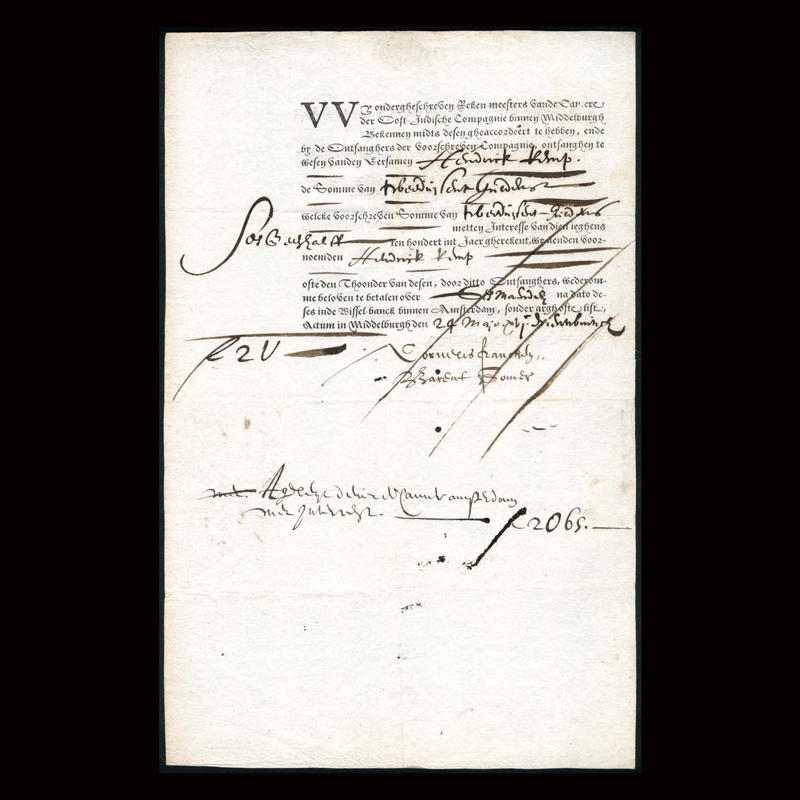 VVY ondergheschreven Reken-meesters vande Cam ere
der Oost-Indische Compagnie binnen Middelburgh
Bekennen midts desen gheaccordeert te hebben, ende
by de Ontfanghers der voorschreven Compagnie, ontfanghen te
wesen vanden Eersamen Hendrick Kemp.
de Somme van twee duijsent Guldens
welcke voorschreven Somme van twee duijsent Guldens
metten Interesse van dien jeghens
Ses Een half ten hondert int Jaer gherekent, wy aenden voor-
noemden Hendrick Kemp
ofte den Thoonder van desen, door ditto Ontfanghers, wederom-
me beloven te betalen over Ses Maenden na dato de-
ses inde Wissel-banck binnen Amsterdam, sonder argh ofte list,
Actum in Middelburgh den 24
Cornelis
Barent
met Interest.
2065.